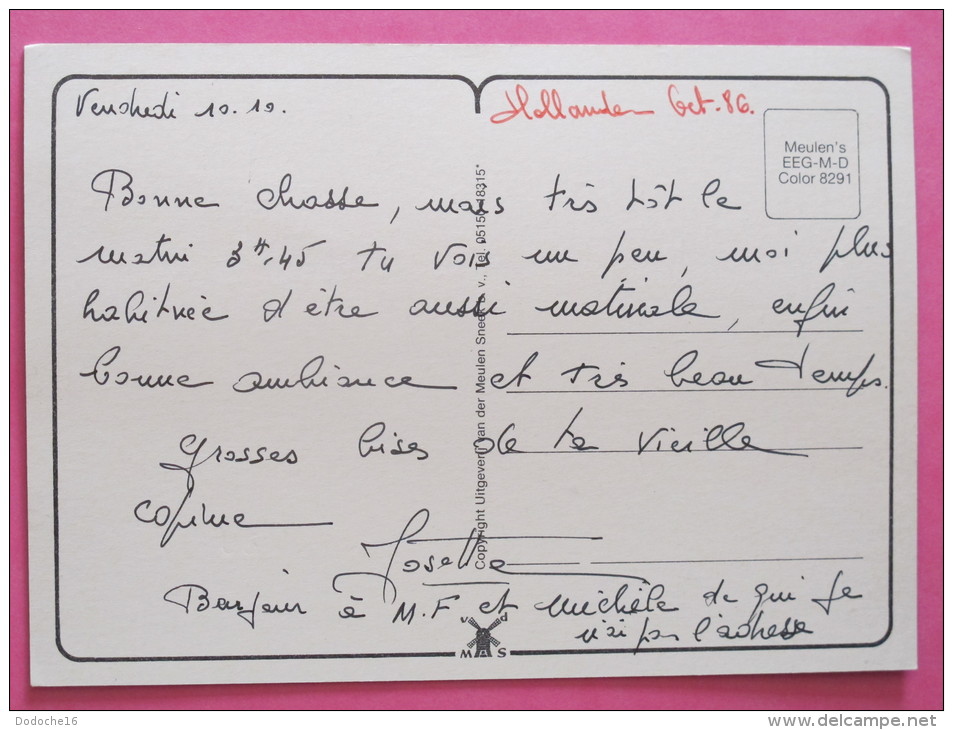 Vendredi 10.10.
Hollande Oct.86.
Meulen's
EEG-M-D
Color 8291
Bonne chasse, mais très tôt le
matin 3H.45 tu vois un peu, moi plus
habituée d'être aussi matinale, enfin
bonne ambiance et très beau temps.
Grosses bises de ta vieille
copine
Josette
Bonjour à M.F et Michèle de qui je
n'ai pas l'adresse
Copyright Uitgeverij van der Meulen Sneek b.v., Tel. 05150-18315*
v d
M A S
Dodoche16
www.delcampe.net